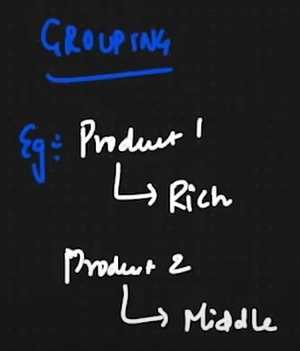 GROUPING
Eg:- Product 1
Rich
Product 2
Middle